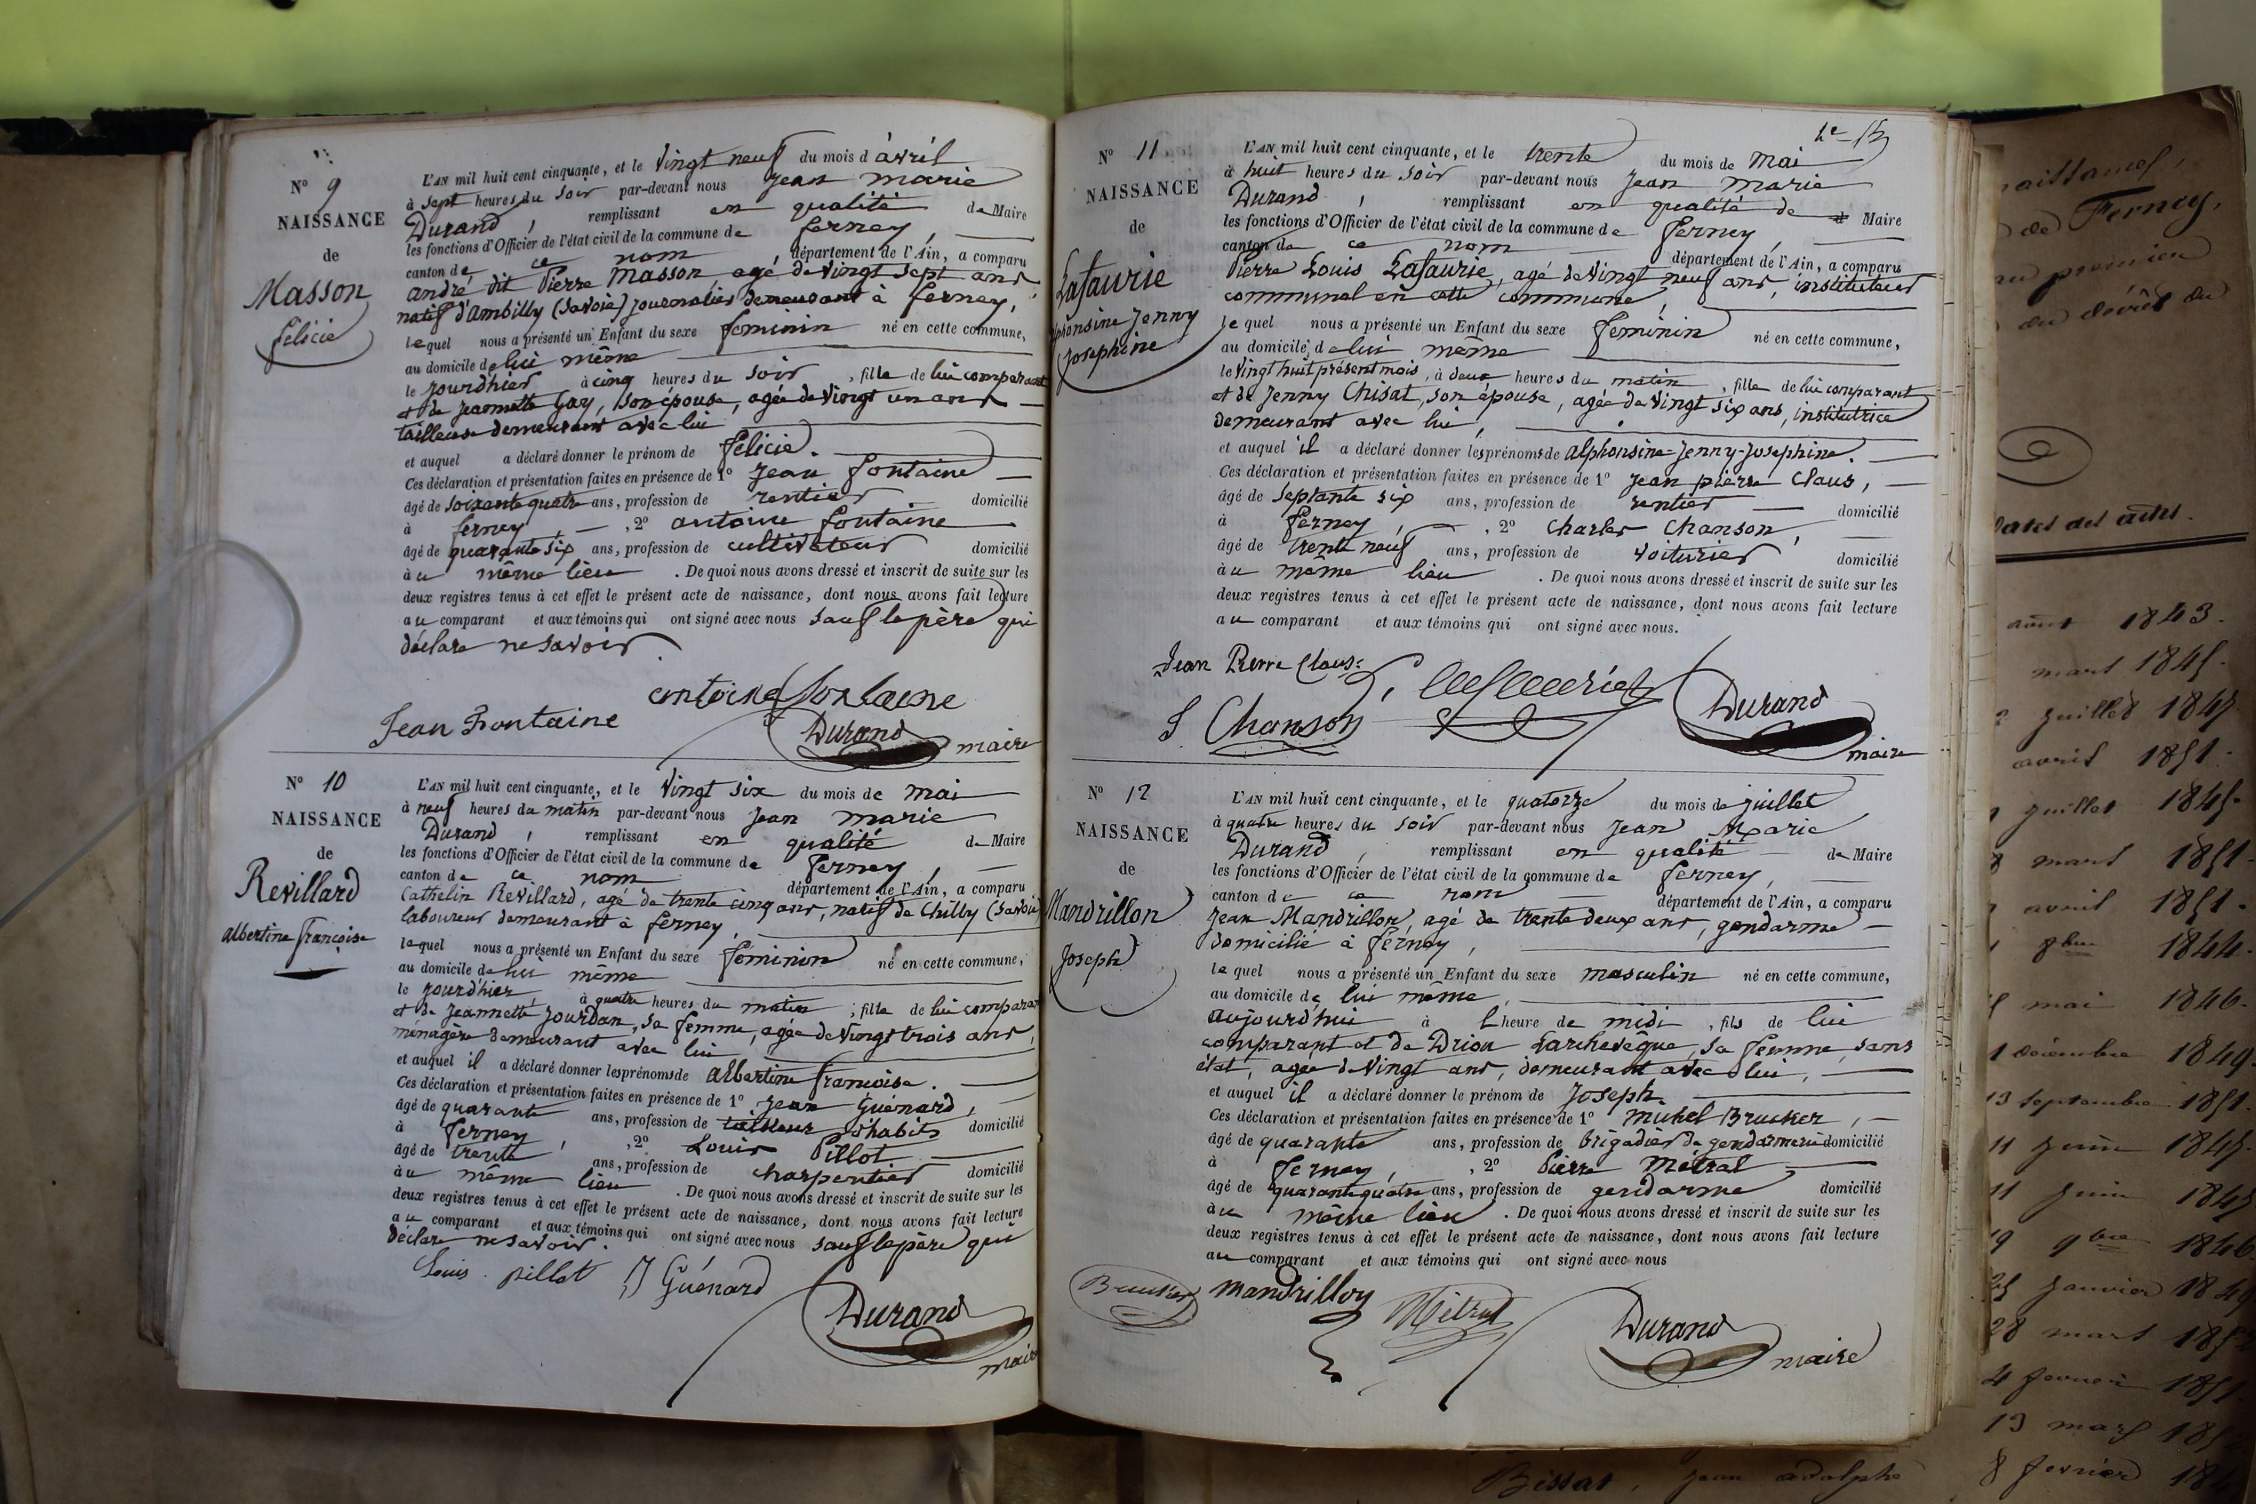 N° 9
NAISSANCE
de
Masson
felicie
L'AN mil huit cent cinquante, et le vingt neuf du mois d'avril
à sept heures du soir par-devant nous jean marie
Durand, remplissant en qualité de Maire
les fonctions d'Officier de l'état civil de la commune de ferney,
canton de ce nom, département de l'Ain, a comparu
andré dit Pierre Masson, agé de vingt sept ans
natif d'ambilly (Savoie) journalier demeurant à ferney,
lequel nous a présenté un Enfant du sexe feminin né en cette commune,
au domicile de lui même
le jourd'hier à cinq heures du soir, fille de lui comparant
et de jeannette Gay, son épouse, agée de vingt un ans
tailleuse demeurant avec lui
et auquel a déclaré donner le prénom de felicie.
Ces déclaration et présentation faites en présence de 1° jean fontaine
âgé de soixante quatre ans, profession de rentier domicilié
à ferney, 2° antoine fontaine
âgé de quarante six ans, profession de cultivateur domicilié
au même lieu. De quoi nous avons dressé et inscrit de suite sur les
deux registres tenus à cet effet le présent acte de naissance, dont nous avons fait lecture
au comparant et aux témoins qui ont signé avec nous sauf le père qui
déclare ne savoir.
antoine fontaine
Jean Frontaine
Durand
maire
N° 10
NAISSANCE
de
Revillard
albertine françoise
L'AN mil huit cent cinquante, et le vingt six du mois de mai
à neuf heures du matin par-devant nous jean marie
Durand, remplissant en qualité de Maire
les fonctions d'Officier de l'état civil de la commune de ferney,
canton de ce nom département de l'Ain, a comparu
Cathelin Revillard, agé de trente cinq ans, natif de Chilly (Savoie)
laboureur demeurant à ferney,
lequel nous a présenté un Enfant du sexe feminin né en cette commune,
au domicile de lui même
le jourd'hier, à quatre heures du matin, fille de lui comparant
et de jeannette jourdan, sa femme, agée de vingt trois ans,
ménagère demeurant avec lui
et auquel il a déclaré donner les prénoms de albertine françoise.
Ces déclaration et présentation faites en présence de 1° jean Guénard,
âgé de quarante ans, profession de tailleur d'habits domicilié
à ferney, 2° Louis Pillot
âgé de trente ans, profession de charpentier domicilié
au même lieu. De quoi nous avons dressé et inscrit de suite sur les
deux registres tenus à cet effet le présent acte de naissance, dont nous avons fait lecture
au comparant et aux témoins qui ont signé avec nous sauf le père qui
déclare ne savoir.
Louis pillot J Guénard
Durand
maire
N° 11
NAISSANCE
de
Lafaurie
alphonsine Jenny
Josephine
L'AN mil huit cent cinquante, et le trente du mois de mai
à huit heures du soir par-devant nous jean marie
Durand, remplissant en qualité de Maire
les fonctions d'Officier de l'état civil de la commune de ferney,
canton de ce nom département de l'Ain, a comparu
Pierre Louis Lafaurie, agé de vingt neuf ans, instituteur
communal en cette commune,
lequel nous a présenté un Enfant du sexe feminin né en cette commune,
au domicile de lui même
le vingt huit présent mois, à deux heures du matin, fille de lui comparant
et de Jenny Chisat, son épouse, agée de vingt six ans, institutrice
demeurant avec lui,
et auquel il a déclaré donner les prénoms de alphonsine-Jenny-Josephine.
Ces déclaration et présentation faites en présence de 1° jean pierre Claus,
âgé de septante six ans, profession de rentier domicilié
à ferney, 2° Charles Chanson,
âgé de trente neuf ans, profession de voiturier domicilié
au même lieu. De quoi nous avons dressé et inscrit de suite sur les
deux registres tenus à cet effet le présent acte de naissance, dont nous avons fait lecture
au comparant et aux témoins qui ont signé avec nous.
Jean Pierre Claus
Chanson
Durand
maire
N° 12
NAISSANCE
de
Mandrillon
Joseph
L'AN mil huit cent cinquante, et le quatorze du mois de juillet
à quatre heures du soir par-devant nous jean Marie
Durand, remplissant en qualité de Maire
les fonctions d'Officier de l'état civil de la commune de ferney,
canton de ce nom département de l'Ain, a comparu
jean Mandrillon, agé de trente deux ans, gendarme
domicilié à ferney,
lequel nous a présenté un Enfant du sexe masculin né en cette commune,
au domicile de lui même,
aujourd'hui à l'heure de midi, fils de lui
comparant et de Drion Larchevêque, sa femme, sans
état, agée de vingt ans, demeurant avec lui,
et auquel il a déclaré donner le prénom de Joseph.
Ces déclaration et présentation faites en présence de 1° Michel Brucker,
âgé de quarante ans, profession de brigadier de gendarmerie domicilié
à ferney, 2° Pierre Métral
âgé de quarante quatre ans, profession de gendarme domicilié
au même lieu. De quoi nous avons dressé et inscrit de suite sur les
deux registres tenus à cet effet le présent acte de naissance, dont nous avons fait lecture
au comparant et aux témoins qui ont signé avec nous
Brucker mandrillon Métral
Durand
maire
naissances,
de Ferney,
du décès du
Dates des actes.
août 1843.
mars 1845.
juillet 1847
avril 1851.
juillet 1845.
mars 1851.
avril 1851.
8bre 1844.
mai 1846.
1 décembre 1849.
13 septembre 1851.
11 juin 1845.
11 juin 1845
19 9bre 1846
janvier 1849
28 mars
4 février 1851
13 mars
8 février
Bissat, jean adolphe